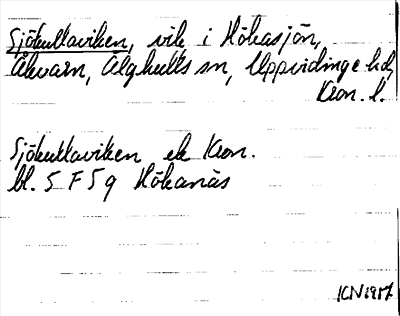 Sjökullaviken, vik i Hökasjön,
Åkvarn, Älghults sn, Uppvidinge hd,
Kron. l.
Sjökullaviken ek Kron.
bl. 5 F 5g Hökanäs
KN 1957